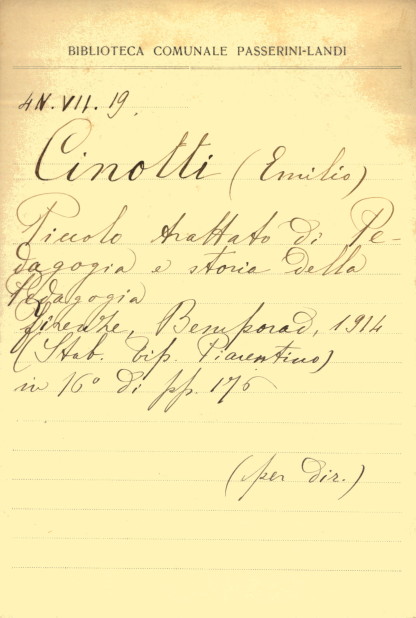 BIBLIOTECA COMUNALE PASSERINI-LANDI
4N.VII.19.
Cinotti (Emilio)
Piccolo trattato di Pe-
dagogia e storia della
Pedagogia
Firenze, Bemporad, 1914
(Stab. tip. Piacentino)
in 16° di pp. 176
(per dir.)